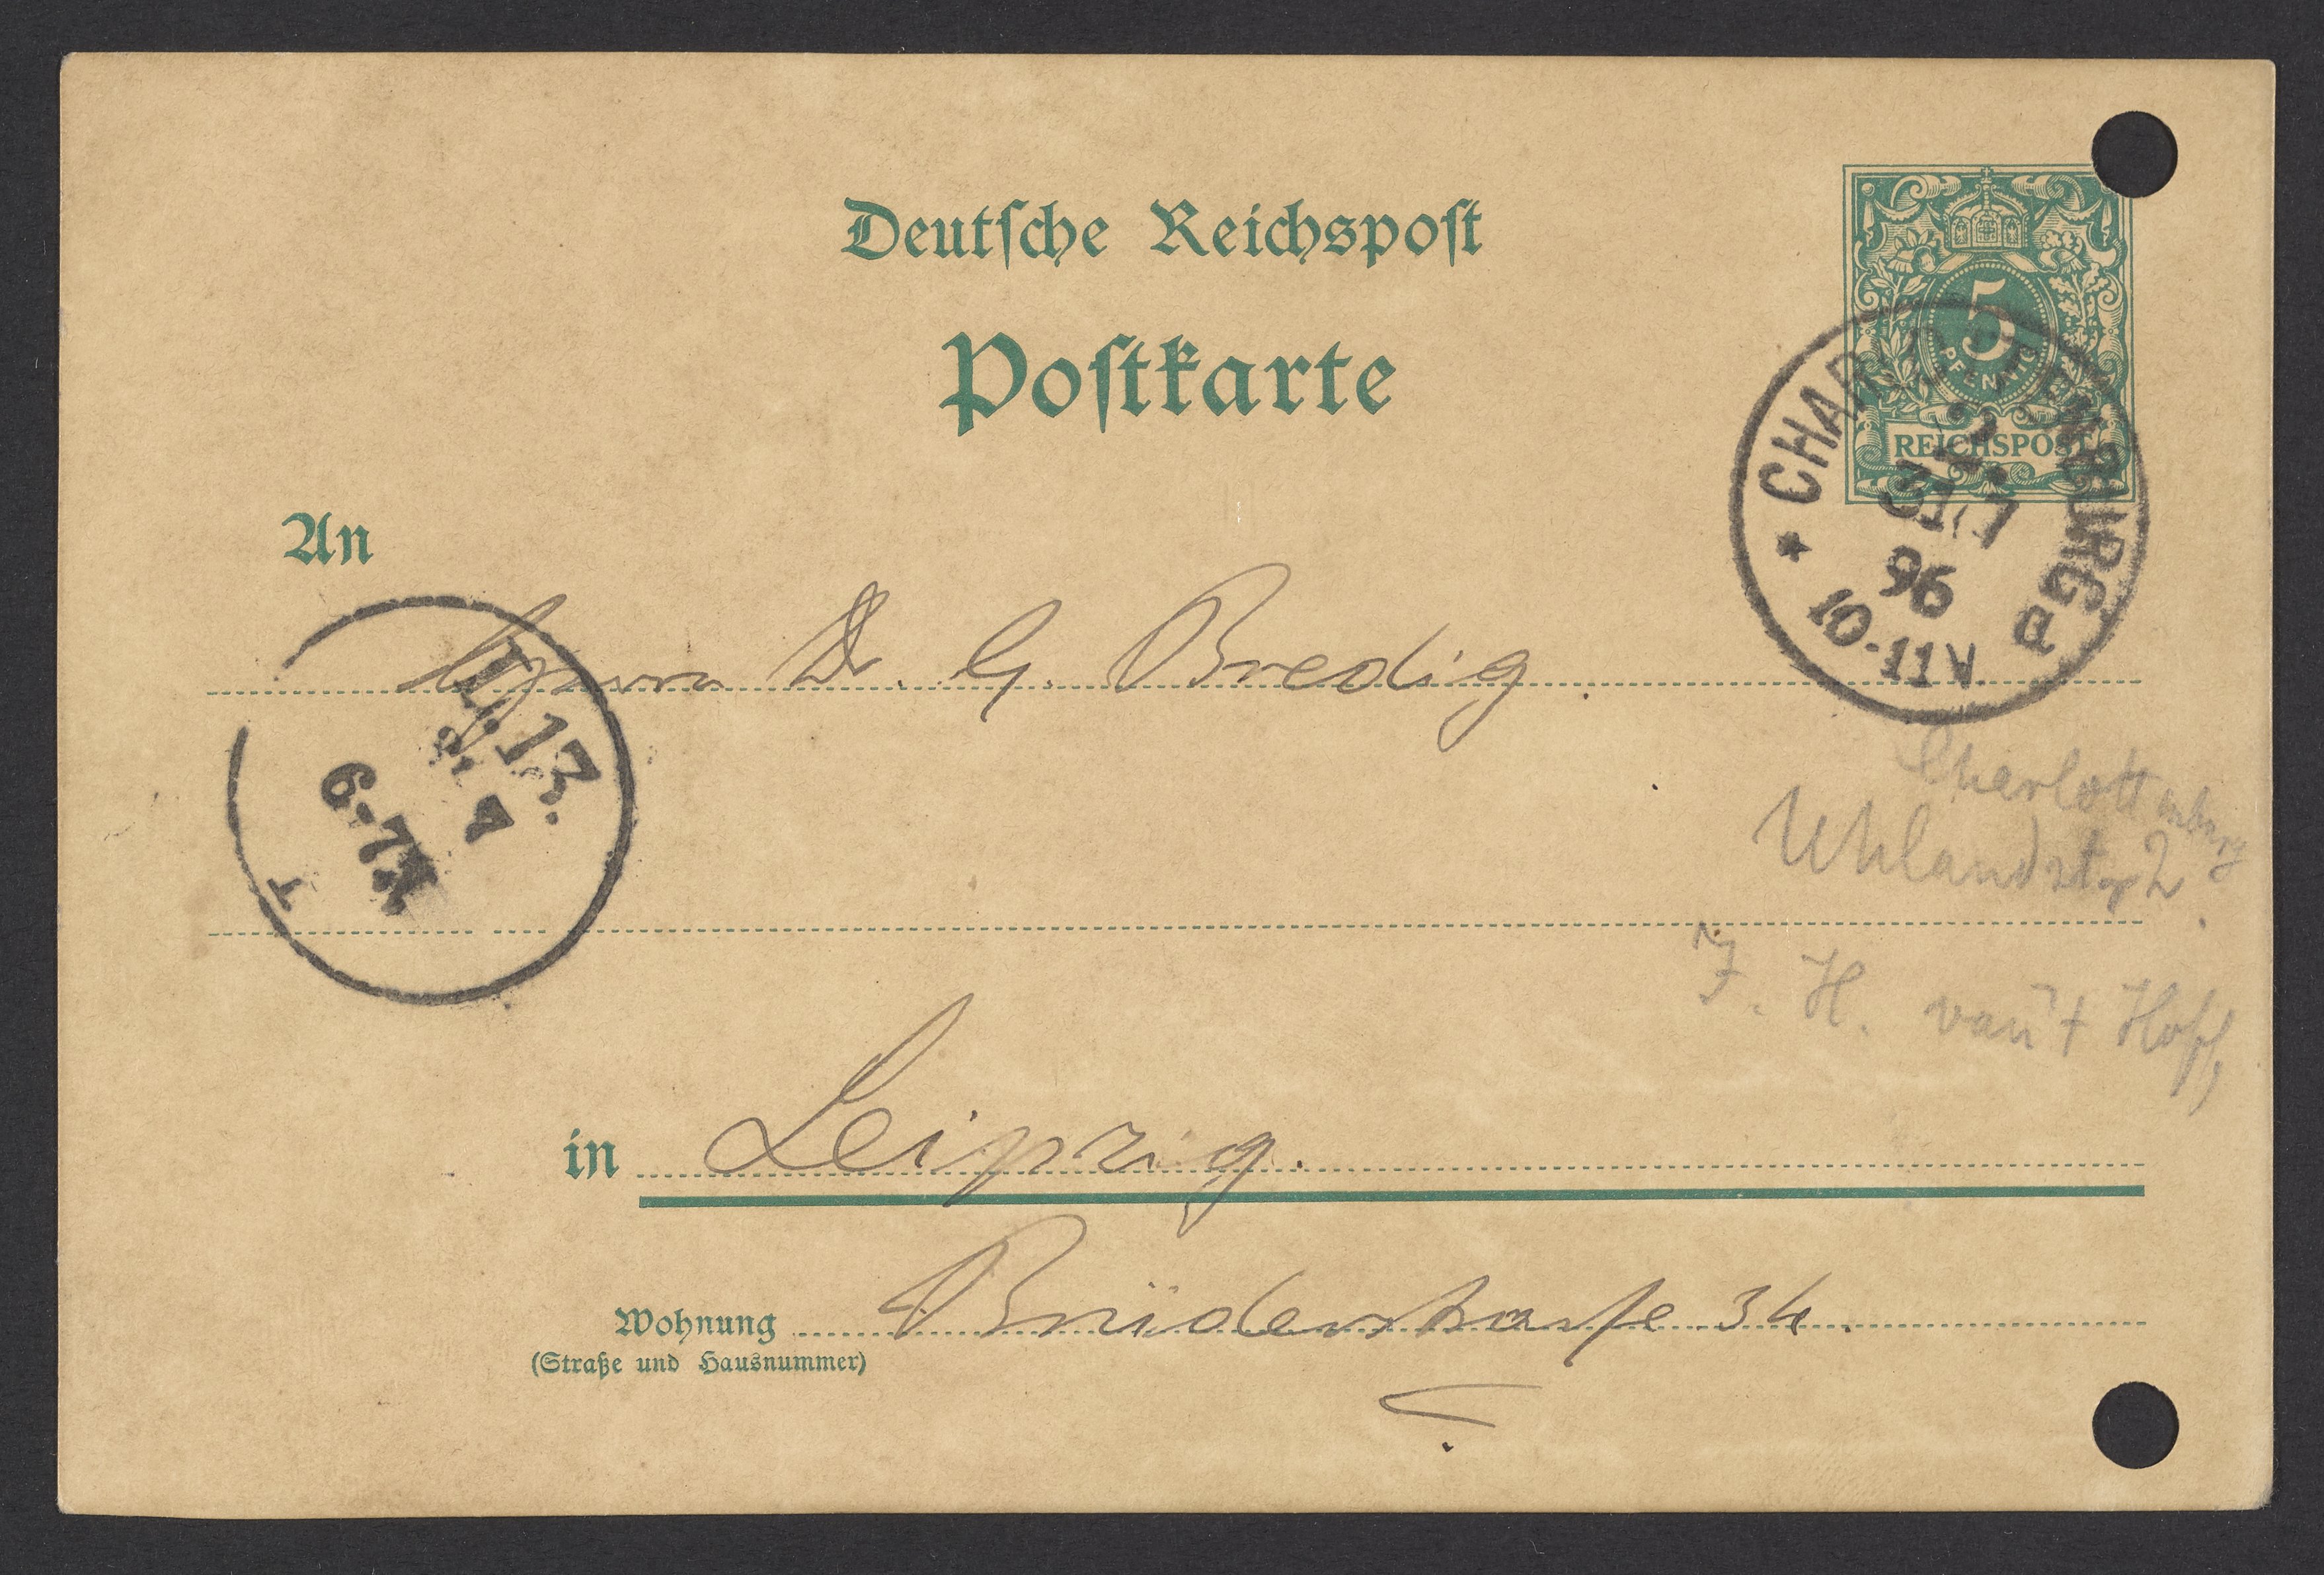 Deutſche Reichspoſt
Poſtkarte
5
PFENNIG
REICHSPOST
* CHARLOTTENBURG
2
31/7
96
10-11V.
a
An
Herrn Dr. G. Bredig.
II. 13.
6-7
Charlottenburg
Uhlandstr 2.
J. H. van't Hoff,
in Leipzig.
Wohnung Brüderstraſse 34.
(Straße und Hausnummer)